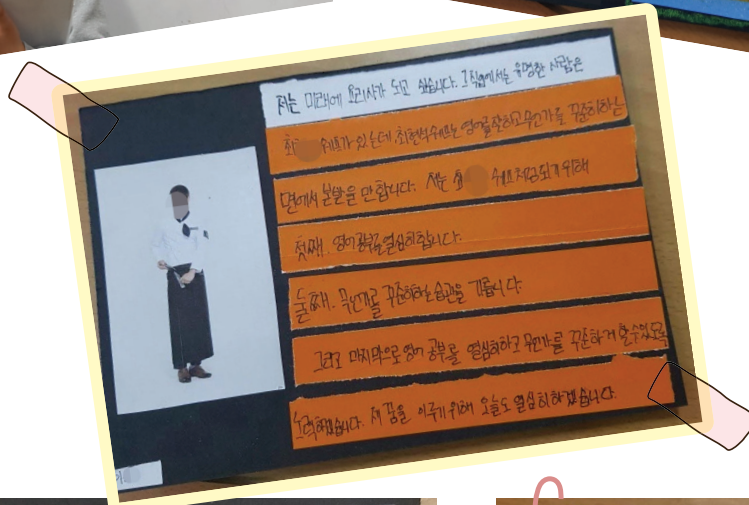 저는 미래에 요리사가 되고 싶습니다. 그 직업에서는 유명한 사람은
최 쉐프가 있는데, 최현석쉐프는 영어를 잘하고 무언가를 꾸준히하는
면에서 본받을 만 합니다. 저는 쉐프처럼 되기 위해
첫째, 영어공부를 열심히 합니다.
둘째, 무언가를 꾸준히하는 습관을 기릅니다.
그리고 마지막으로 영어 공부를 열심히하고 무언가를 꾸준하게 할수있도록
노력하겠습니다. 제 꿈을 이루기 위해 오늘도 열심히 하겠습니다.